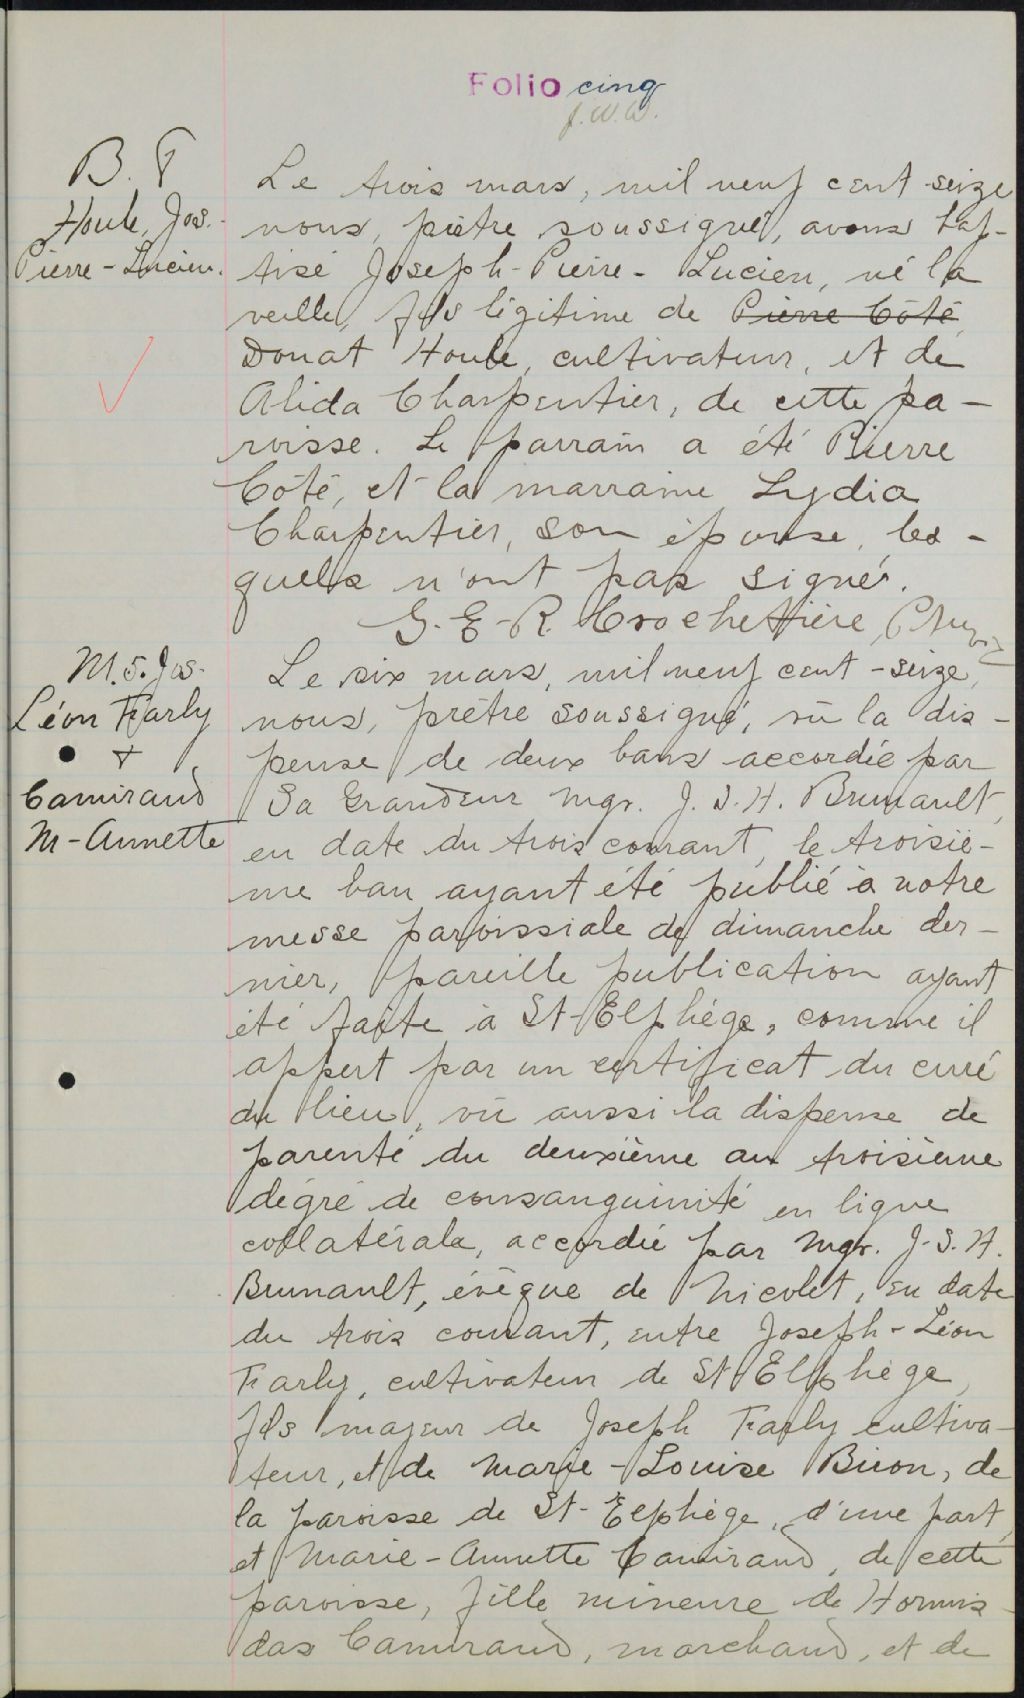 Folio cinq
J.W.W.
B. 9
Houle, Jos.
Pierre-Lucien.
Le trois mars, mil neuf cent-seize
nous, prêtre soussigné, avons bap-
tisé Joseph-Pierre-Lucien, né la
veille, fils légitime de Pierre Côté
Donat Houle, cultivateur, et de
Alida Charpentier, de cette pa-
roisse. Le parrain a été Pierre
Côté, et la marraine Lydia
Charpentier, son épouse, les-
quels n'ont pas signé.
G.-E-R. Crochettière, Ptre
M.5. Jos-
Léon Farly
+
Camirand
M-Annette
Le six mars, mil neuf cent-seize,
nous, prêtre soussigné, vû la dis-
pense de deux bans accordée par
Sa Grandeur Mgr. J. S. H. Brunault,
en date du trois courant, le troisiè-
me ban ayant été publié à notre
messe paroissiale de dimanche der-
nier, pareille publication ayant
été faite à St-Elphège, comme il
appert par un certificat du curé
du lieu, vû aussi la dispense de
parenté du deuxième au troisième
dégré de consanguinité en ligne
collatérale, accordée par Mgr. J.S.H.
Brunault, évêque de Nicolet, en date
du trois courant, entre Joseph-Léon
Farly, cultivateur de St Elphège,
fils majeur de Joseph Farly cultiva-
teur, et de Marie-Louise Biron, de
la paroisse de St-Elphège, d'une part,
et Marie-Annette Camirand, de cette
paroisse, fille mineure de Hormis-
das Camirand, marchand, et de